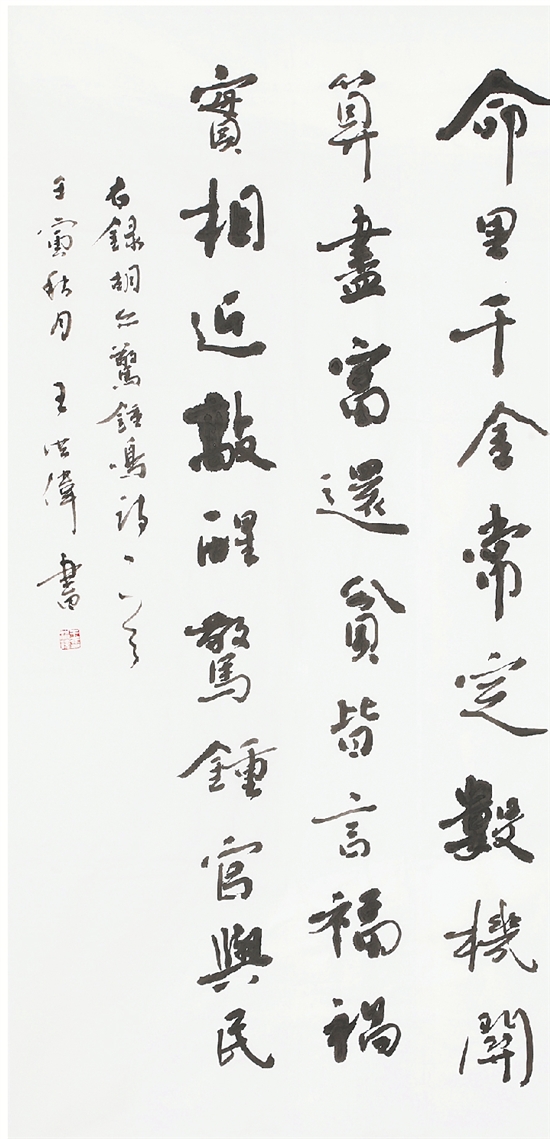 命里千金常定數機關
算盡富還貧皆言福禍
實相近敲醒驚鍾官與民
右錄胡公驚鍾鳴詩一首
壬寅秋月 王洪偉 書